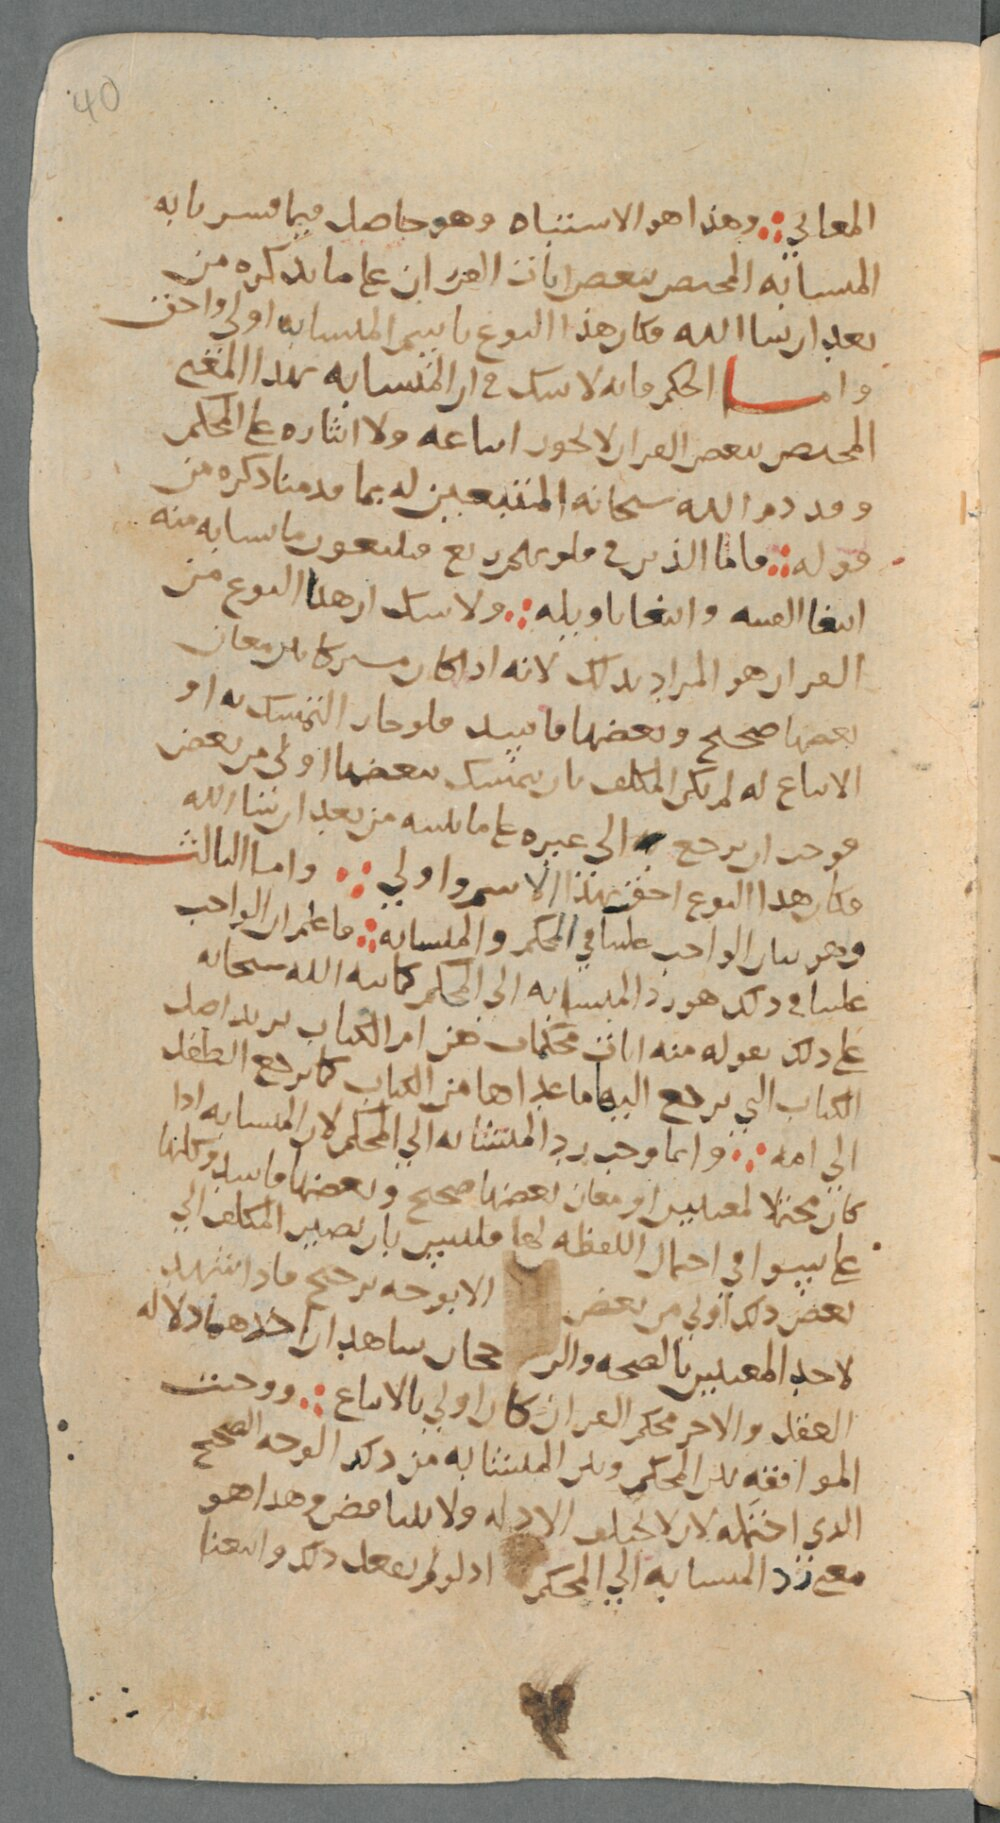 40
المعاني ؞ وهذا هو الاستباه وهو حاصل فيما فسرنا به
المتشابه المختص ببعض ايات القران على ما نذكره من
بعد ان شا الله فكان هذا النوع باسم المتشابه اولى واحق
واما الحكم فانه لا شك في ان المتشابه بهذا المعنى
المختص ببعض القران لا يجوز اتباعه ولا ايثاره على المحكم
وقد ذم الله سبحانه المتتبعين له بما قدمنا ذكره من
قوله ؞ فاما الذين في قلوبهم زيغ فيتبعون ما تشابه منه
ابتغا الفتنه وابتغا تاويله ؞ ولا شك ان هذا النوع من
القران هو المراد بذلك لانه اذا كان مشتركا بين معان
بعضها صحيح وبعضها فاسد فلو جاز التمسك به او
الاتباع له لم يكن المكلف بان يتمسك ببعضها اولى من بعض
فوجب ان يرجع الى غيره على ما نبينه من بعد ان شا الله
فكان هذا النوع احق بهذا الاسم واولى ؞ واما الثالث
وهو بيان الواجب علينا في المحكم والمتشابه ؞ فاعلم ان الواجب
علينا في ذلك هو رد المتشابه الى المحكم كما نبه الله سبحانه
على ذلك بقوله منه ايات محكمات هن ام الكتاب يريد اصل
الكتاب التي يرجع اليها ما عداها من الكتاب كما يرجع الطفل
الى امه ؞ وانما وجب رد المتشابه الى المحكم لان المتشابه اذا
كان محتملا لمعنيين او معان بعضها صحيح وبعضها فاسد وكلها
على سوا في احتمال اللفظه لها فليس بان يصير المكلف الى
بعض ذلك اولى من بعض الا بوجه ترجيح فاذا شهد
لاحد المعنيين بالصحه والرجحان شاهدان احدهما دلاله
العقل والاخر محكم القران كان اولى بالاتباع ؞ ووجبت
الموافقه بين المحكم وبين المتشابه من ذلك الوجه الصحيح
الذي احتمله لان لا تختلف الادله ولا تتناقض وهذا هو
معنى رد المتشابه الى المحكم اذ لو لم نفعل ذلك واتبعنا